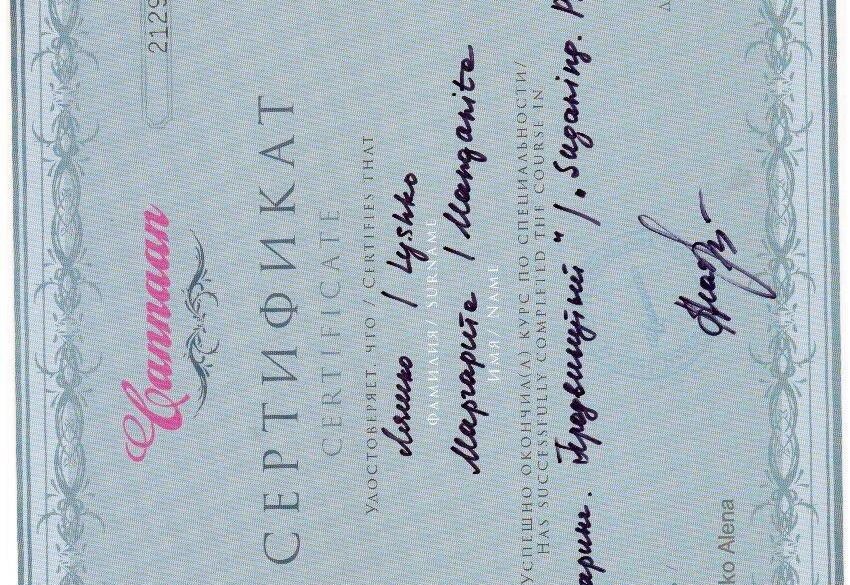 2129
Cannaan
СЕРТИФИКАТ
CERTIFICATE
УДОСТОВЕРЯЕТ, ЧТО / CERTIFIES THAT
Ляшко / Lyshko
ФАМИЛИЯ / SURNAME
Маргарита / Margarita
ИМЯ / NAME
УСПЕШНО ОКОНЧИЛ(А) КУРС ПО СПЕЦИАЛЬНОСТИ/
HAS SUCCESSFULLY COMPLETED THE COURSE IN
аринг. Продвинутый" / „Sugaring. P
ko Alena